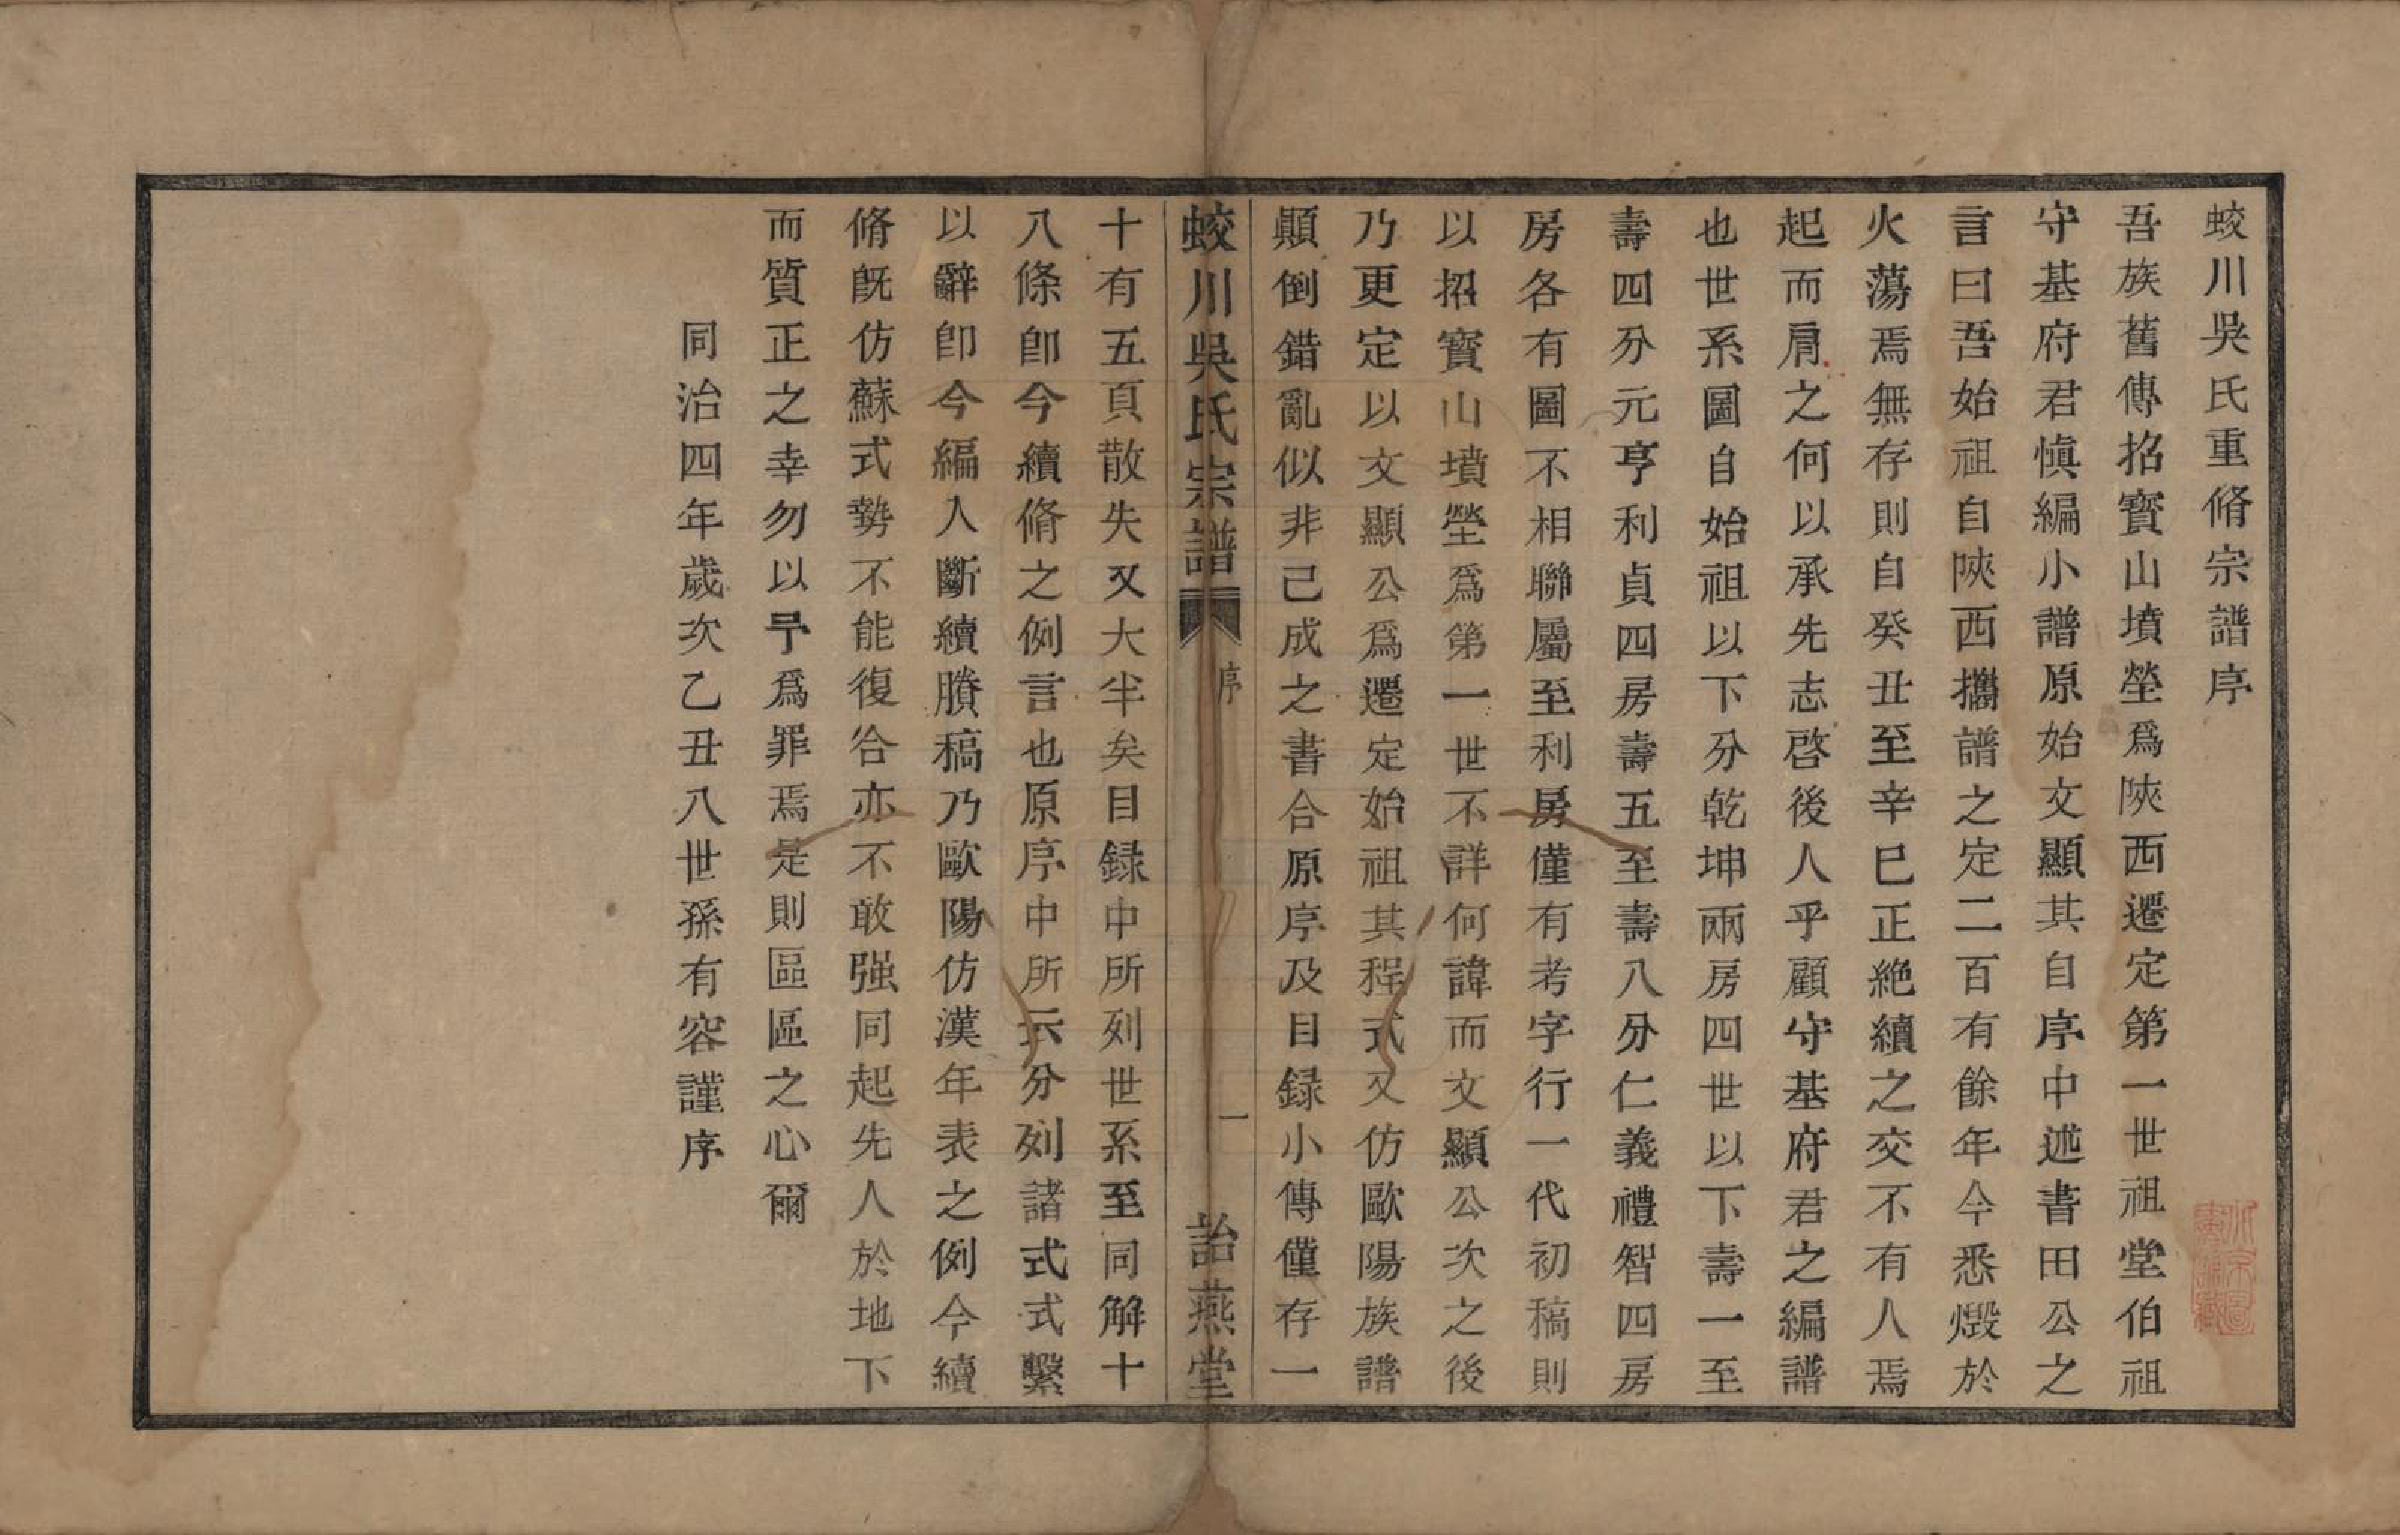 蛟川吳氏重脩宗譜序
吾族舊傳招寳山墳塋爲陜西遷定第一世祖堂伯祖
守基府君愼編小譜原始文顯其自序中述書田公之
言曰吾始祖自陜西攜譜之定二百有餘年今悉燬於
火蕩焉無存則自癸丑至辛巳正絶續之交不有人焉
起而肩之何以承先志啓後人乎顧守基府君之編譜
也世系圖自始祖以下分乾坤兩房四世以下壽一至
壽四分元亨利貞四房壽五至壽八分仁義禮智四房
房各有圖不相聯屬至利房僅有考字行一代初稿則
以招寳山墳塋爲第一世不詳何諱而文顯公次之後
乃更定以文顯公爲遷定始祖其程式又仿歐陽族譜
顚倒錯亂似非已成之書合原序及目録小傳僅存一
蛟川吳氏宗譜 序 一 詒燕堂
十有五頁散失又大半矣目録中所列世系至同解十
八條卽今續脩之例言也原序中所示分列諸式式繫
以辭卽今編入斷續賸稿乃歐陽仿漢年表之例今續
脩旣仿蘇式勢不能復合亦不敢强同起先人於地下
而質正之幸勿以予爲罪焉是則區區之心爾
同治四年歲次乙丑八世孫有容謹序